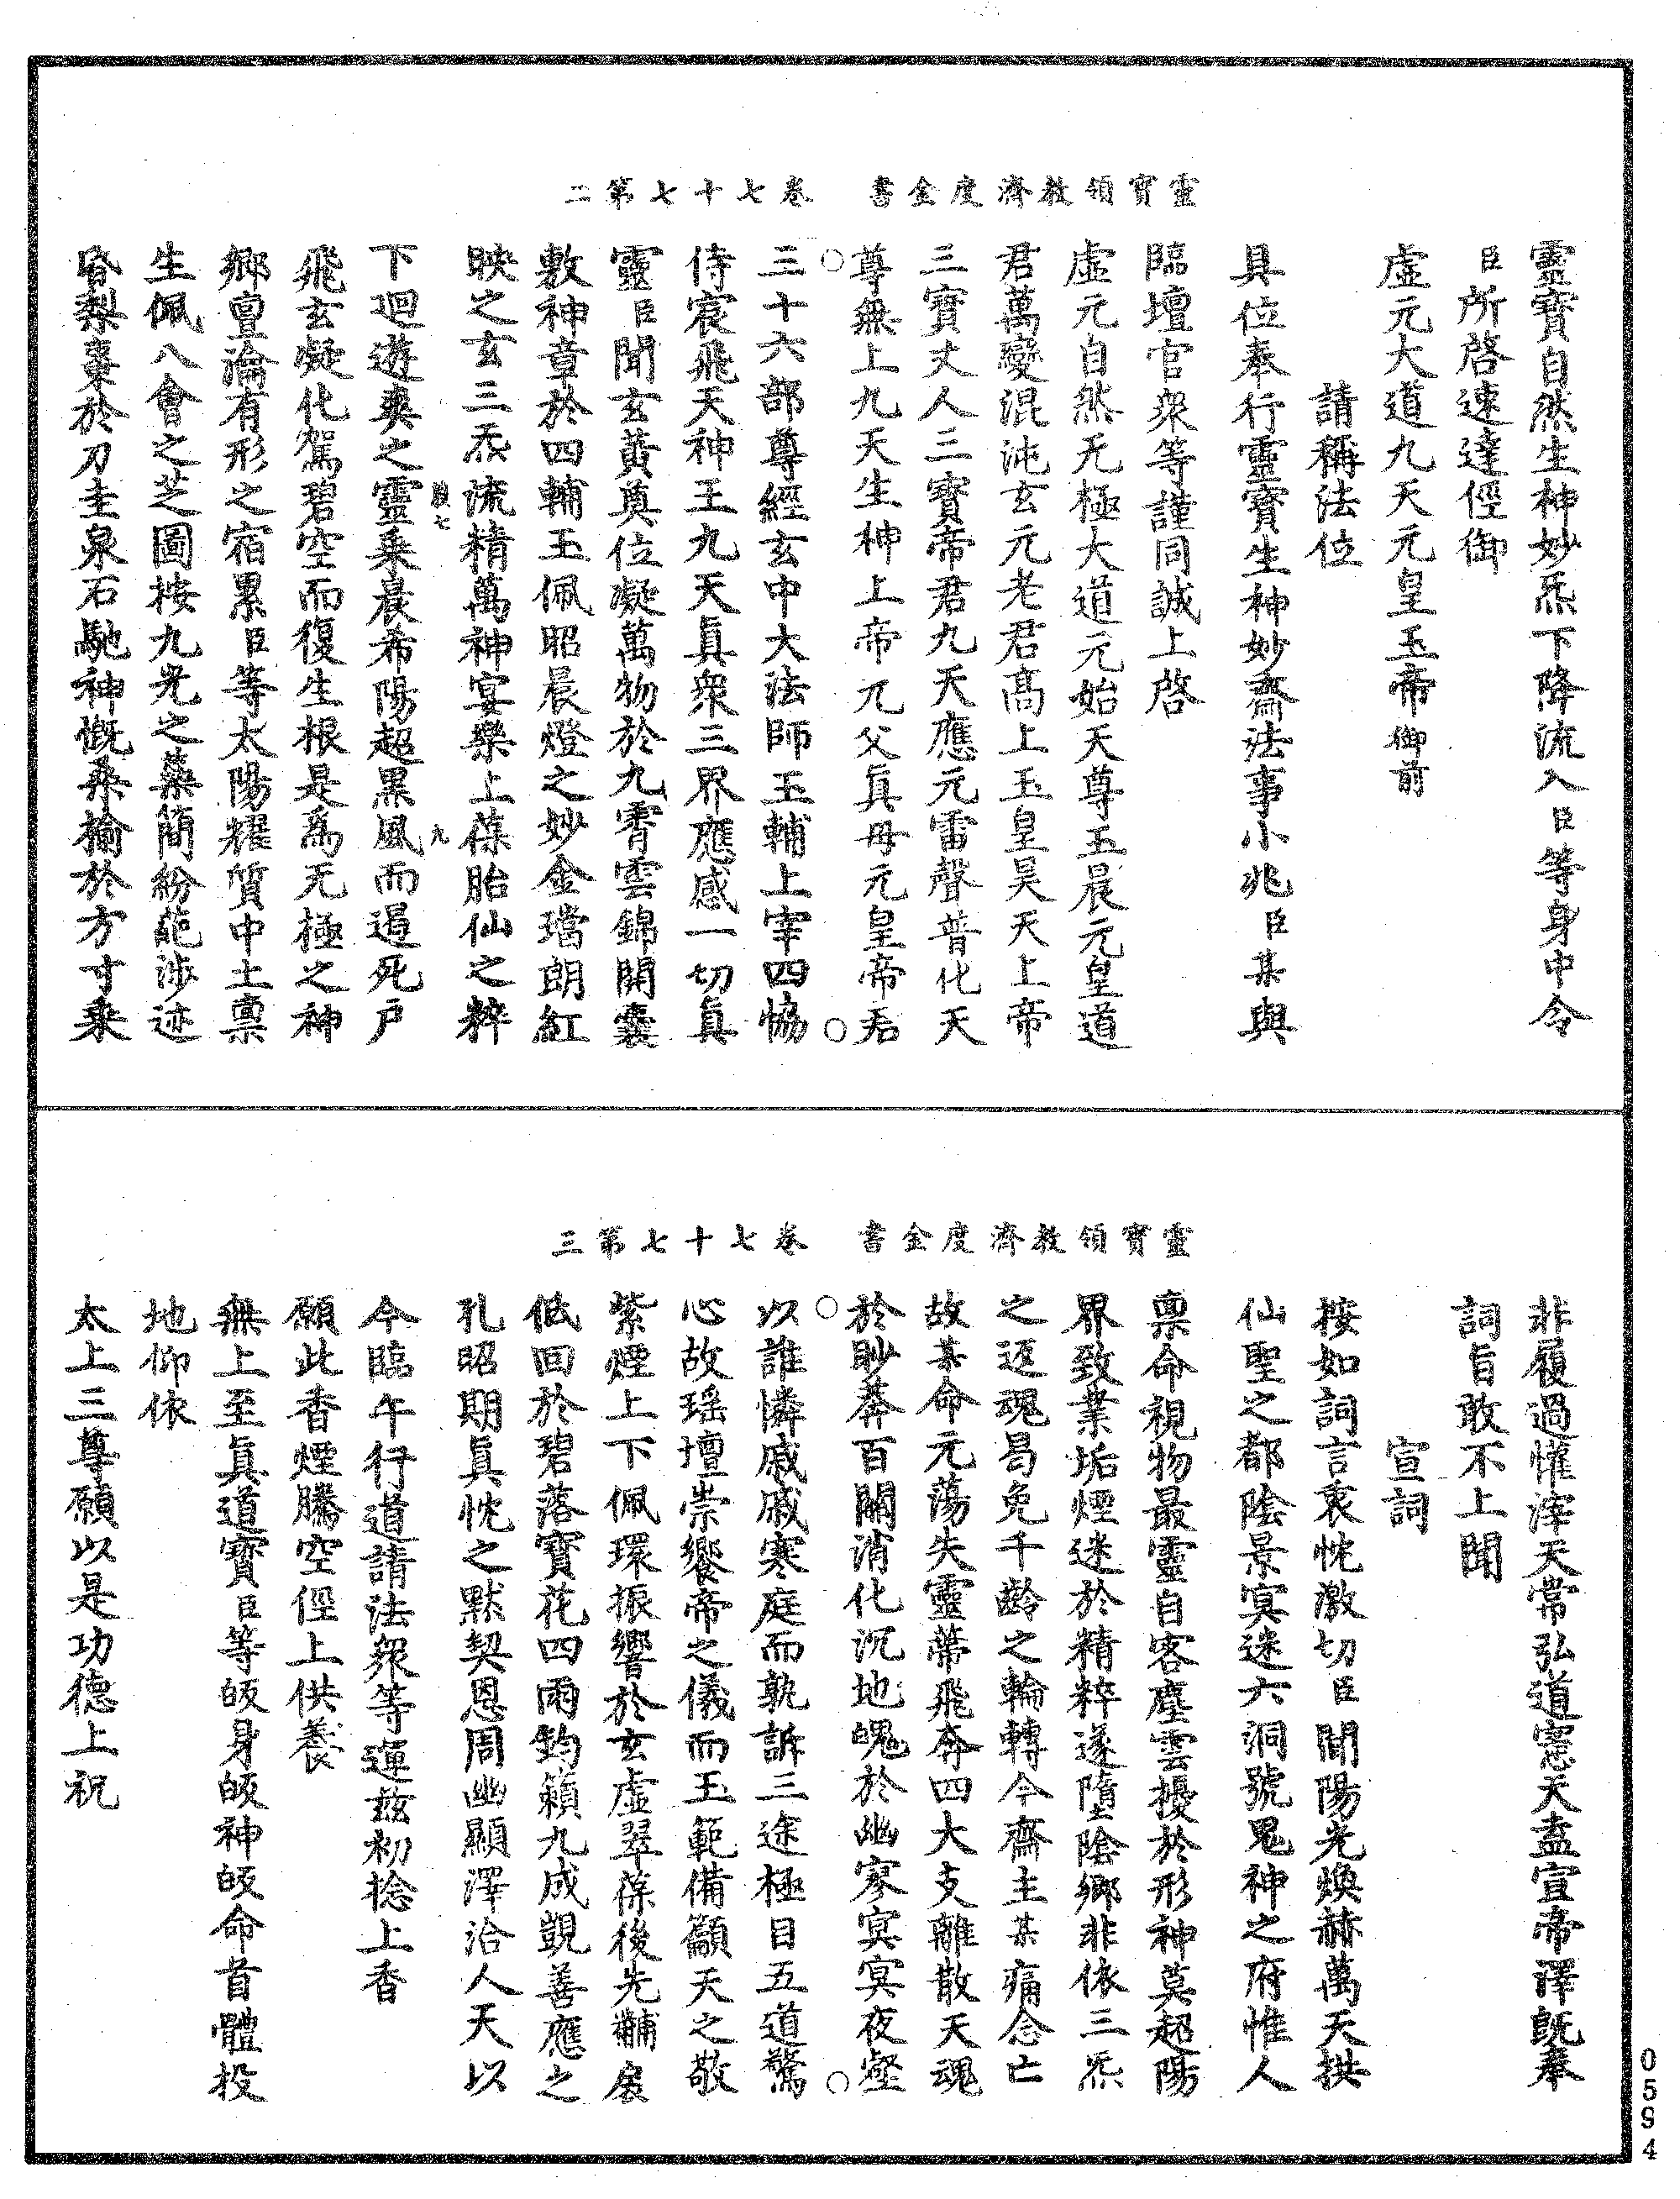 靈寶領教濟度金書　卷七十七第二
靈寶自然生神妙炁下降流入臣等身中令
臣所啓速達徑御
虛元大道九天元皇玉帝御前
請稱法位
具位奉行靈寶生神妙齋法事小兆臣某與
臨壇官衆等謹同誠上啓
虛元自然无極大道元始天尊玉晨元皇道
君萬變混沌玄元老君高上玉皇昊天上帝
三寶丈人三寶帝君九天應元雷聲普化天
尊無上九天生神上帝兀父真母元皇帝君
三十六部尊經玄中大法師玉輔上宰四恊
侍宸飛天神王九天眞衆三界應感一切眞
靈臣聞玄黃奠位凝萬物於九霄雲錦開囊
敷神章於四輔玉佩昭晨燈之妙金璫朗紅
映之玄三炁流精萬神宴樂上葆胎仙之粹
下迴遊爽之靈乘晨希陽超黑風而過死戶
飛玄凝化駕碧空而復生根是爲无極之神
鄉亶瀹有形之宿累臣等太陽耀質中土禀
生佩八會之芝圖按九光之蘂簡紛葩涉迹
昬梨棗於刀圭泉石馳神慨桑榆於方寸乘
九
靈寶領教濟度金書　卷七十七第三
非履過懽滓天常弘道憲天盍宣帝澤旣奉
詞旨敢不上聞
宣詞
按如詞言衷忱激切臣聞陽光煥赫萬天拱
仙聖之都陰景冥迷六洞號鬼神之府惟人
禀命視物最靈自客塵雲擾於形神莫超陽
界致業垢煙迷於精粹遂墮陰鄉非依三炁
之返魂曷免千齡之輪轉今齋主某痛念亡
故某命元蕩失靈蒂飛奔四大支離散天魂
於眇莽百關消化沉地魄於幽寥冥冥夜壑
以誰憐戚戚寒庭而孰訴三途極目五道驚
心故瑤壇崇饗帝之儀而玉範備籲天之敬
紫煙上下佩環振響於玄虛翠葆後先黼扆
低回於碧落寶花四雨鈞籟九成覬善應之
孔昭期眞忱之默契恩周幽顯澤洽人天以
今臨午行道請法衆等運兹初捻上香
願此香煙騰空徑上供養
無上至眞道寶臣等皈身皈神皈命首體投
地仰依
太上三尊願以是功德上祝
0594